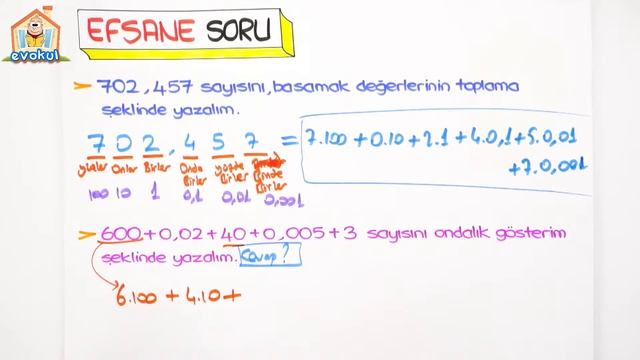 evokul
EFSANE SORU
702,457 sayısını, basamak değerlerinin toplama
şeklinde yazalım.
7 0 2 , 4 5 7 = 7.100 + 0.10 + 2.1 + 4.0,1 + 5.0,01
+ 7.0,001
yüzler Onlar Birler Onda Birler Yüzde Birler Binde Birler
100 10 1 0,1 0,01 0,001
600 + 0,02 + 40 + 0,005 + 3 sayısını ondalık gösterim
şeklinde yazalım. Cevap?
6.100 + 4.10 +